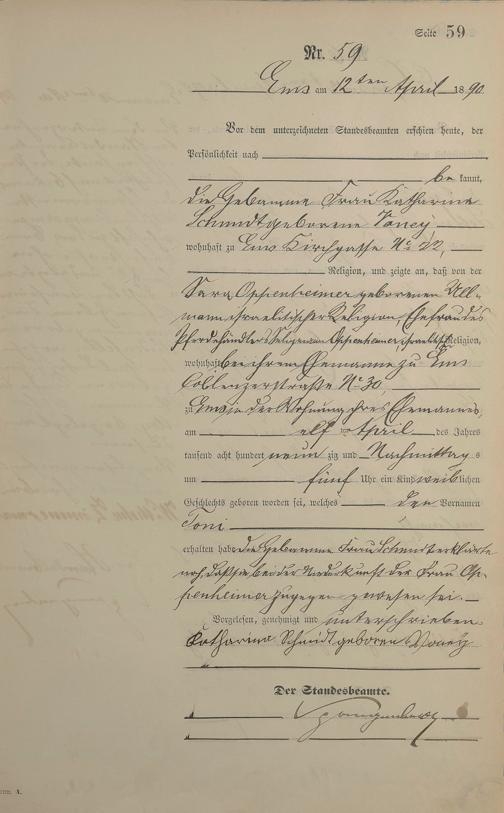 Seite 59
Nr. 59
Ems am 12ten April 1890
Vor dem unterzeichneten Standesbeamten erschien heute, der
Persönlichkeit nach
be kannt,
die Hebamme Frau Katharine
Schmidt geborene
wohnhaft zu Ems Kirchgasse No 22,
Religion, und zeigte an, daß von der
Sara Oppenheimer geborenen Ull-
mann, israelitischer Religion, Ehefrau des
Pferdehändlers Seligmann Oppenheimer, israelitisch Religion,
wohnhaft bei ihrem Ehemanne zu Ems
Coblenzerstraße No 30,
zu Ems in der Wohnung ihres Ehemannes,
am elf ten April des Jahres
tausend acht hundert neun zig und Nachmittag s
um fünf Uhr ein Kind weib lichen
Geschlechts geboren worden sei, welches den Vornamen
Toni
erhalten habe. Die Hebamme Frau Schmidt erklärte
noch, daß sie bei der Niederkunft der Frau Op-
penheimer zugegen gewesen sei.
Vorgelesen, genehmigt und unterschrieben
Katharina Schmidt geboren
Der Standesbeamte.